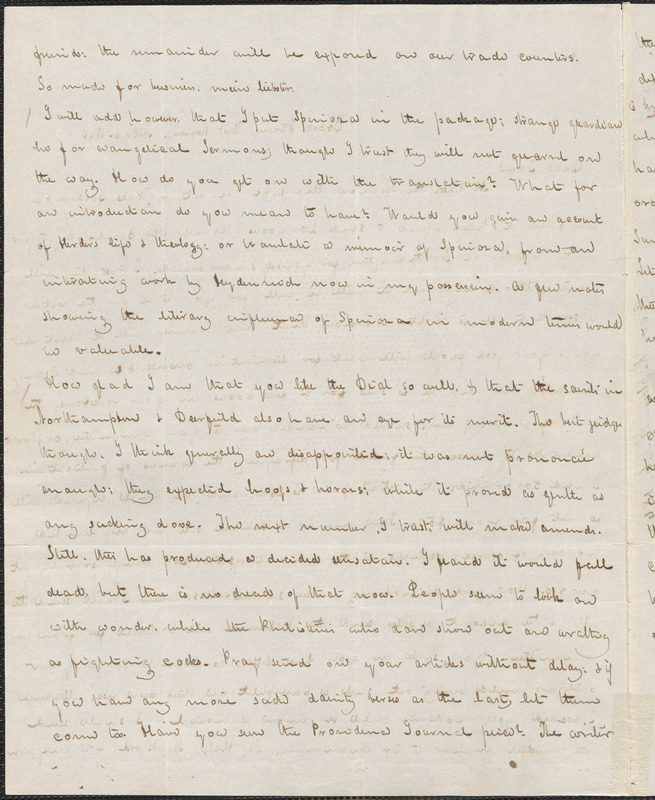 friends: the remainder will be exposed on our trade counters.
So much for business, mein liebster.
I will add however, that I put Spinoza in the package; strange guardian
he for evangelical Sermons; though I trust they will not quarrel on
the way. How do you get on with the translation? What for
an introduction do you mean to have? Would you give an account
of Herder's life & theology: or translate a memoir of Spinoza, from an
interesting work by Heydenreich now in my possession. A few notes
showing the literary influence of Spinoza in modern times would
be valuable.
How glad I am that you like the Dial so well, & that the saints in
Northampton & Deerfield also have an eye for its merit. The best judges
though, I think generally are disappointed; it was not prononcé
enough; they expected hoofs & horns; while it proved as gentle as
any sucking dove. The next number, I trust will make amends.
Still, this has produced a decided sensation. I feared it would fall
dead, but there is no dread of that now. People seem to look on
with wonder, while the Philistines who dare show out are wrathy
as fighting cocks. Pray send on your articles without delay: & if
you have any more such dainty verses as the last, let them
come too. Have you seen the Providence Journal piece? The writer